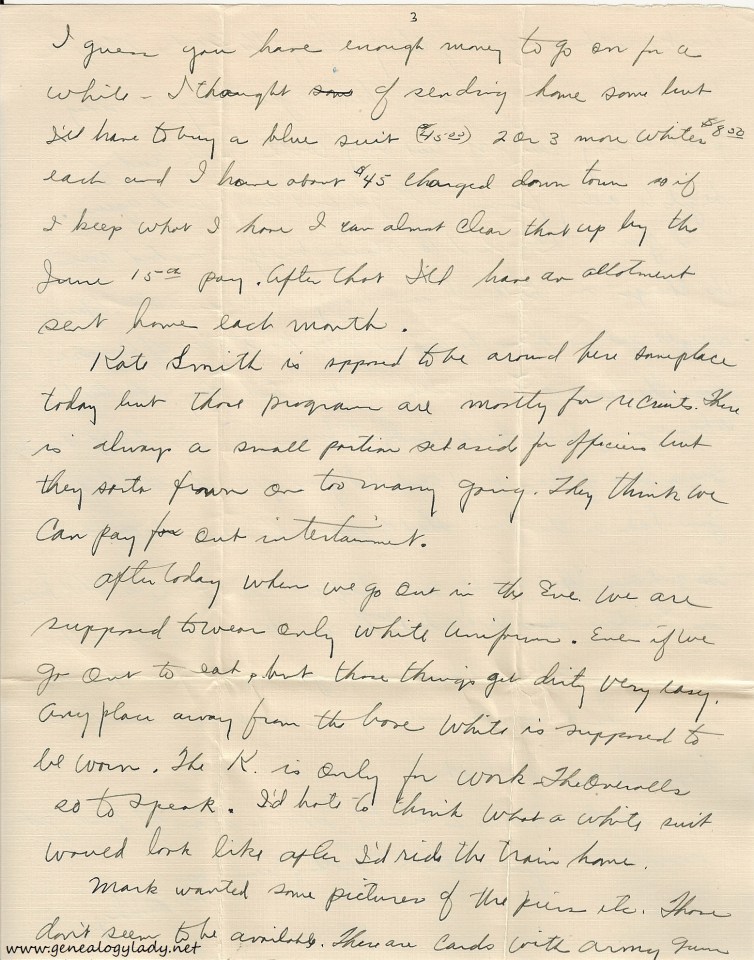 3
I guess you have enough money to go on for a
while – I thought some of sending home some but
I'll have to buy a blue suit ($45.00) 2 or 3 more whites $8.00
each and I have about $45 charged down town so if
I keep what I have I can almost clear that up by the
June 15th pay. After that I'll have an allotment
sent home each month.
Kate Smith is spposed to be around here someplace
today but those program are mostly for recruits. There
is always a small portion set aside for officers but
they sorta frown on too many going. They think we
can pay for out intertainment.
After today when we go out in the Eve. we are
supposed to wear only white uniform. Even if we
go out to eat, but those things get dirty very easy.
Any place away from the base white is supposed to
be worn. The K. is only for work. The Overalls
so to speak. I'd hate to think what a white suit
would look like after I'd ride the train home.
Mark wanted some pictures of the piers etc. Those
don't seem to be available. There are cards with army guns
www.genealogylady.net